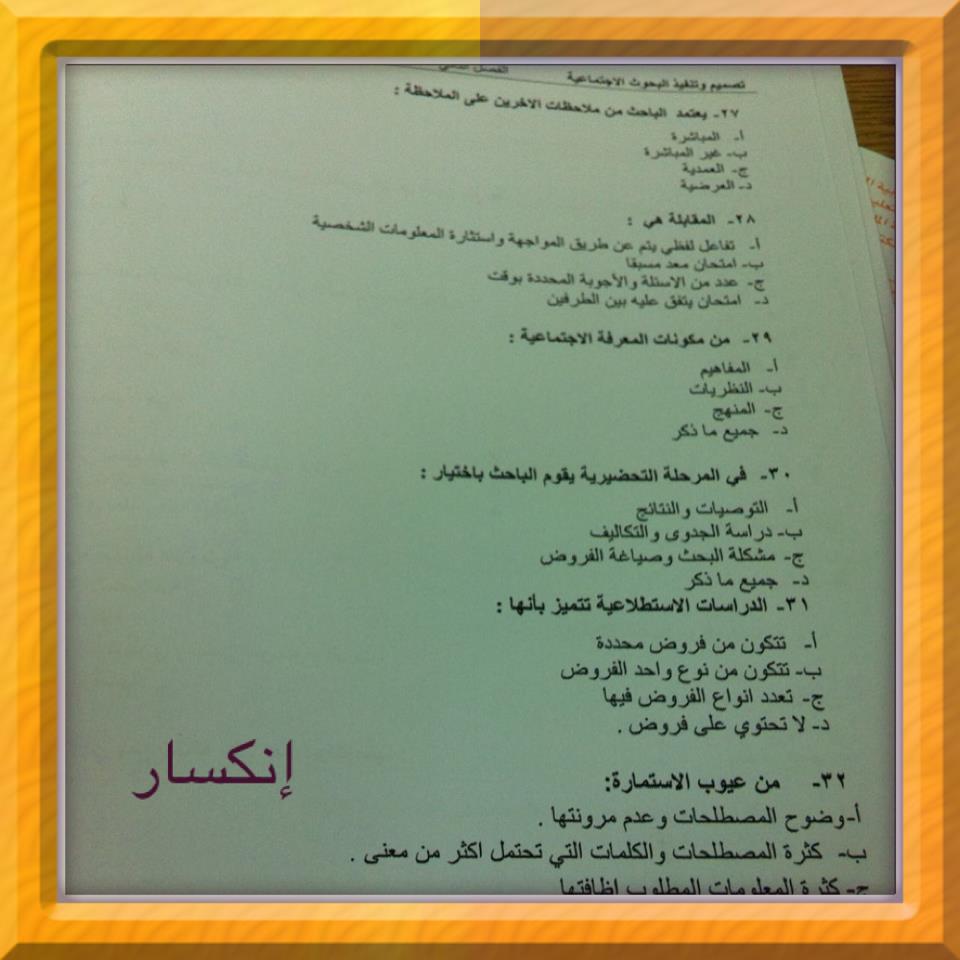 تصميم وتنفيذ البحوث الاجتماعية الفصل الثاني
٢٧- يعتمد الباحث من ملاحظات الاخرين على الملاحظة :
أ- المباشرة
ب- غير المباشرة
ج- العمدية
د- العرضية
٢٨- المقابلة هي :
أ- تفاعل لفظي يتم عن طريق المواجهة واستثارة المعلومات الشخصية
ب- امتحان معد مسبقا
ج- عدد من الاسئلة والأجوبة المحددة بوقت
د- امتحان يتفق عليه بين الطرفين
٢٩- من مكونات المعرفة الاجتماعية :
أ- المفاهيم
ب- النظريات
ج- المنهج
د- جميع ما ذكر
٣٠- في المرحلة التحضيرية يقوم الباحث باختيار :
أ- التوصيات والنتائج
ب- دراسة الجدوى والتكاليف
ج- مشكلة البحث وصياغة الفروض
د- جميع ما ذكر
٣١- الدراسات الاستطلاعية تتميز بأنها :
أ- تتكون من فروض محددة
ب- تتكون من نوع واحد الفروض
ج- تعدد انواع الفروض فيها
د- لا تحتوي على فروض .
٣٢- من عيوب الاستمارة:
أ-وضوح المصطلحات وعدم مرونتها .
ب- كثرة المصطلحات والكلمات التي تحتمل اكثر من معنى .
ج- كثرة المعلومات المطلوب اظافتها
إنكسار